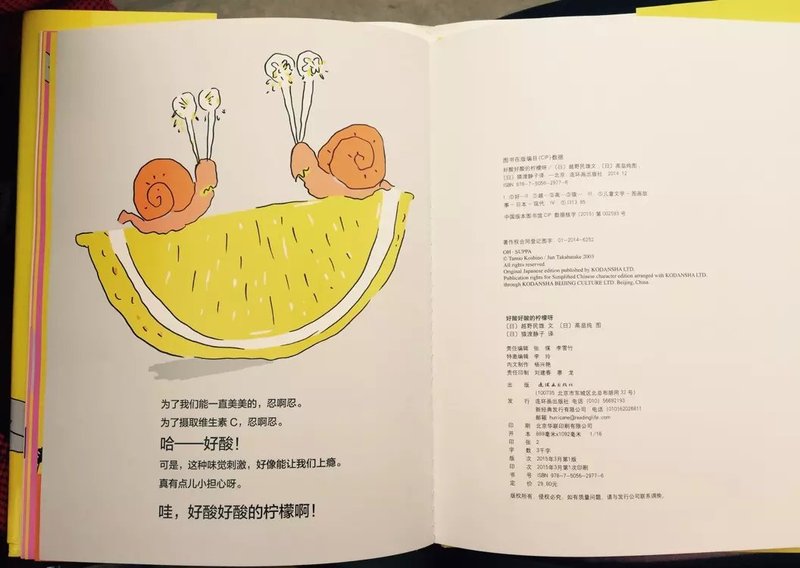 为了我们能一直美美的，忍啊忍。
为了摄取维生素 C，忍啊忍。
哈——好酸！
可是，这种味觉刺激，好像能让我们上瘾。
真有点儿小担心呀。
哇，好酸好酸的柠檬啊！
图书在版编目(CIP)数据
好酸好酸的柠檬呀／（日）越野民雄文；（日）高畠纯图；
（日）猿渡静子译．—北京：连环画出版社，2014.12
ISBN 978-7-5056-2977-6
中国版本图书馆 CIP 数据核字（2015）第 002593 号
著作权合同登记图字：01-2014-6252
OH - SUPPA
© Tamio Koshino / Jun Takabatake 2003
All rights reserved.
Original Japanese edition published by KODANSHA LTD.
Publication rights for Simplified Chinese character edition arranged with KODANSHA LTD.
through KODANSHA BEIJING CULTURE LTD. Beijing, China.
好酸好酸的柠檬呀
〔日〕越野民雄 文 〔日〕高畠纯 图
〔日〕猿渡静子 译
责任编辑 张 保 李雪竹
特邀编辑 李 玲
内文制作 杨兴艳
责任印制 刘建春 惠 龙
出 版 连环画出版社
(100735 北京市东城区北总布胡同 32 号)
发 行 连环画出版社 电话 (010) 56692193
新经典发行有限公司 电话 (010)62026811
邮箱 hurricane@readinglife.com
印 刷 北京华联印刷有限公司
开 本 889毫米x1092毫米 1/16
印 张 2
字 数 3千字
版 次 2015年3月第1版
印 次 2015年3月第1次印刷
书 号 ISBN 978-7-5056-2977-6
定 价 29.90元
版权所有，侵权必究。如有质量问题，请与发行公司联系调换。